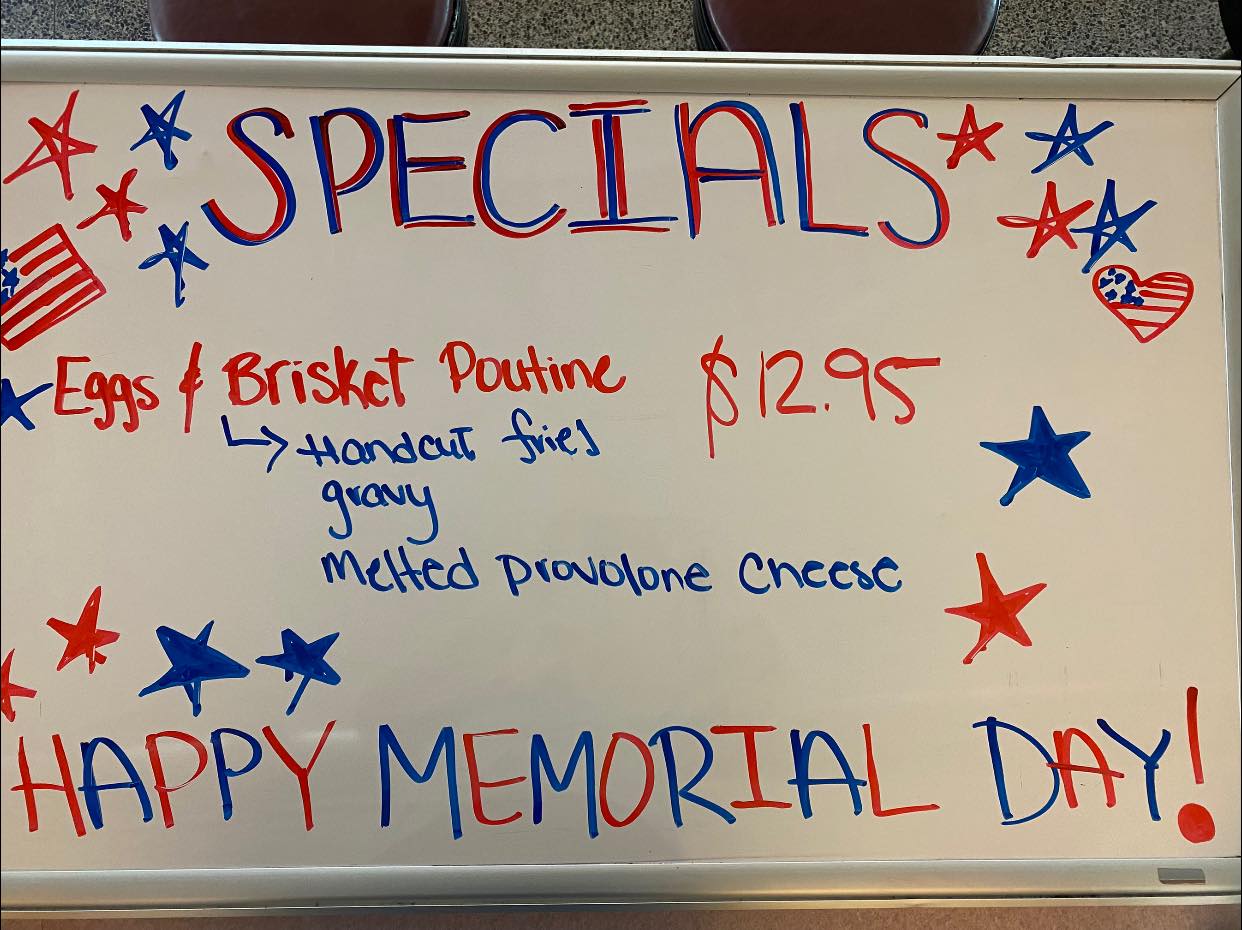 SPECIALS
Eggs & Brisket Poutine $12.95
Handcut fries
gravy
Melted provolone cheese
HAPPY MEMORIAL DAY!